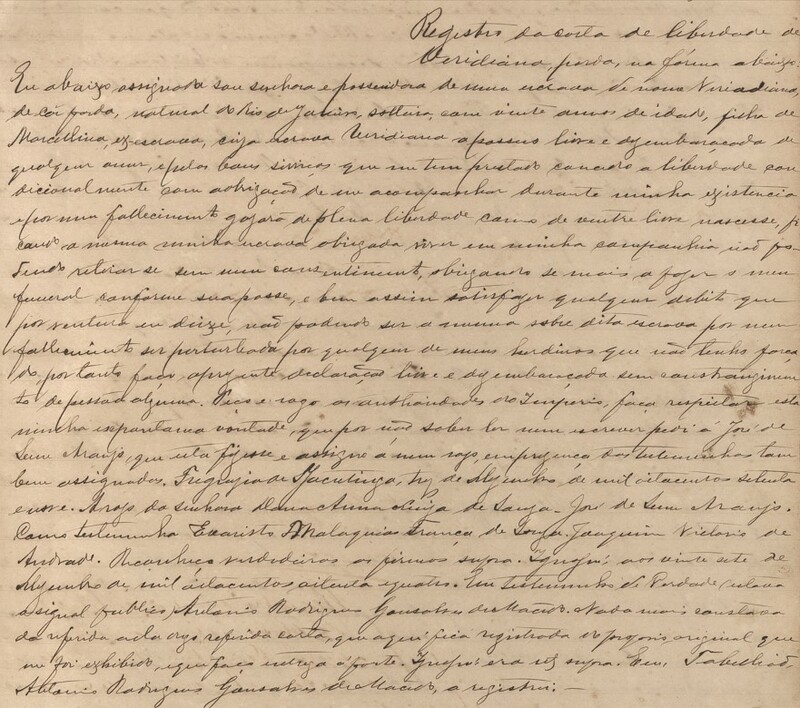 Registro da carta de liberdade de
Veridiana, parda, na fórma abaixo.
Eu abaixo assignada sou senhora e possuidora de uma escrava de nome Viriadiana,
de côr parda, natural do Rio de Janeiro, solteira, com vinte annos de idade, filha de
Marcellina, ex escrava, cuja escrava Veridiana a possuo livre e dezembaracada de
qualquer onus, e pelos bons serviços que me tem prestado concedo a liberdade con
dicionalmente com a obrigação de me acompanhar durante minha existencia
e por meu fallecimento gozará de plena liberdade como de ventre livre nascesse, fi
cando a mesma minha escrava obrigada viver em minha companhia não po-
dendo retirar se sem meu consentimento, obrigando se mais a fazer o meu
funeral conforme sua posse, e bem assim satisfazer qualquer debito que
por ventura eu deixe, não podendo ser a mesma sobre dita escrava por meu
fallecimento ser perturbada por qualquer de meus herdeiros que não tenho forca
do, por tanto faco a prezente declaração livre e dezembaracada sem constrangimen
to de pessôa alguma. Peco e rogo as authoridades do Imperio, faça respeitar esta
minha expontania vontade, que por não saber ler nem escrever pedi á José de
Leme Araujo, que esta fizesse e assigne a meu rogo, em prezença das testemunhas tam
bem assignadas. Freguezia de Jacutinga, trez de Dezembro de mil oitocentos setenta
e nove. A rogo da senhora Dona Anna Luiza de Souza. José de Leme Araujo.
Como testemunha Evaristo Malaquias França de Souza. Joaquim Victorio de
Andrade. Reconheço verdadeiras as firmas supra. Iguassú, aos vinte sete de
Dezembro de mil oitocentos oitenta e quatro. Em testemunho de Verdade estava
o signal publico, Antonio Rodrigues Gonsalves de Macedo. Nada mais constava
da referida carta, que aqui fica registrada do proprio original que
me foi exhibido, e que faço entrega á parte. Iguassú era ut supra. Eu, Tabellião,
Antonio Rodrigues Gonsalves de Macedo, a registrei. —